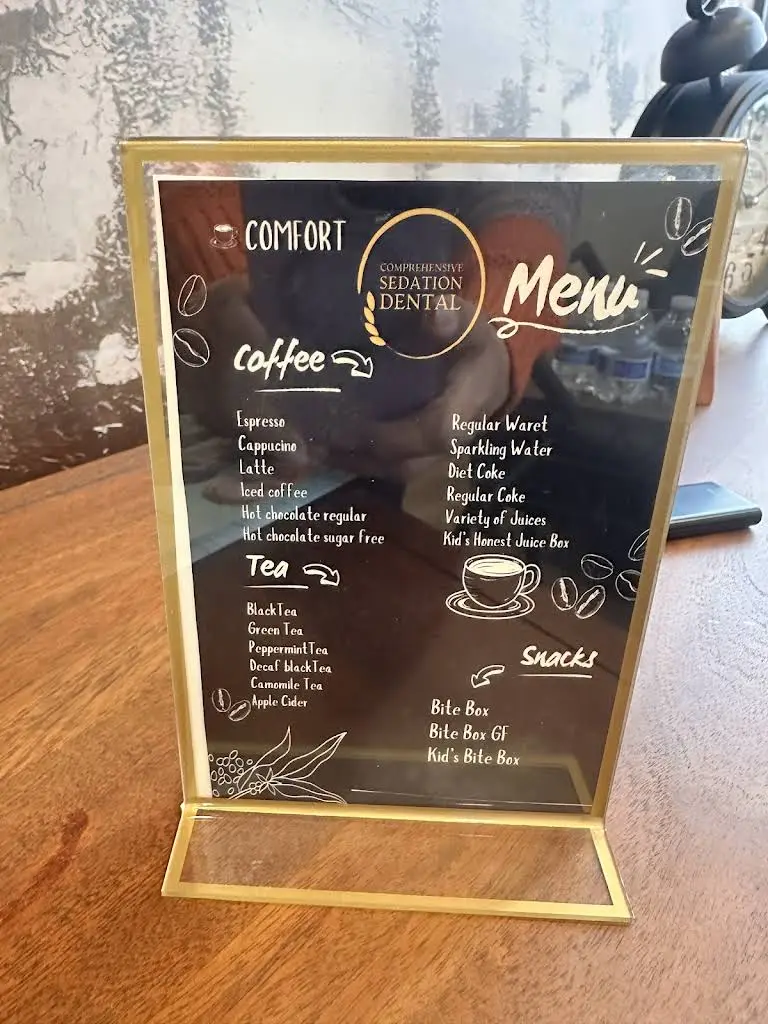 COMFORT
COMPREHENSIVE
SEDATION
DENTAL
Menu
Coffee
Espresso
Cappucino
Latte
Iced coffee
Hot chocolate regular
Hot chocolate sugar free
Tea
BlackTea
Green Tea
PeppermintTea
Decaf blackTea
Camomile Tea
Apple Cider
Regular Waret
Sparkling Water
Diet Coke
Regular Coke
Variety of Juices
Kid's Honest Juice Box
Snacks
Bite Box
Bite Box GF
Kid's Bite Box